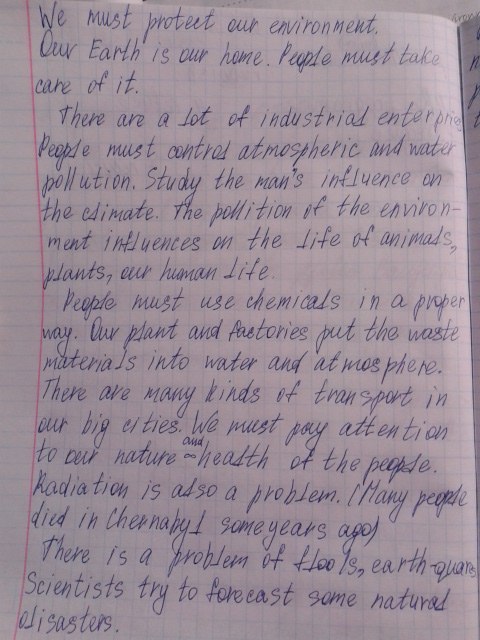 We must protect our environment.
Our Earth is our home. People must take
care of it.
There are a lot of industrial enterpris
People must control atmospheric and water
pollution. Study the man's influence on
the climate. The pollition of the environ-
ment influences on the life of animals,
plants, our human life.
People must use chemicals in a proper
way. Our plant and factories put the waste
materials into water and atmosphere.
There are many kinds of transport in
our big cities. We must pay attention
to our nature and health of the people.
Radiation is also a problem. (Many people
died in Chernabyl some years ago)
There is a problem of floods, earth-quaks
Scientists try to forecast some natural
disasters.